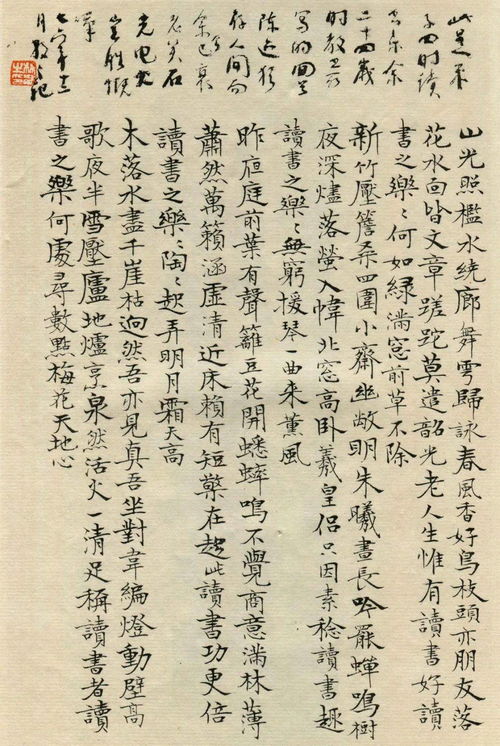 山光照檻水繞廊舞雩歸詠春風香好鳥枝頭亦朋友落
花水面皆文章蹉跎莫遣韶光老人生惟有讀書好讀
書之樂〻何如綠滿窓前草不除
新竹壓簷桑四圍小齋幽敞明朱曦晝長吟罷蟬鳴樹
夜深燼落螢入幃北窓高卧羲皇侶只因素稔讀書趣
讀書之樂〻無窮援琴一曲来薰風
昨夜庭前葉有聲籬豆花開蟋蟀鳴不覺商意滿林薄
蕭然萬籟涵虛清近床賴有短檠在趁此讀書功更倍
讀書之樂〻陶〻起弄明月霜天高
木落水盡千崖枯迥然吾亦見真吾坐對韋編燈動壁高
歌夜半雪壓廬地爐烹泉然活火一清足稱讀書者讀
書之樂何處尋數點梅花天地心
此是朱
子四時讀
書樂余
二十四歲
時教
寫的回首
陳迹猶
存人間而
余已衰
老矣石
火電光
豈勝慨
嘆
七六年十二
月 記